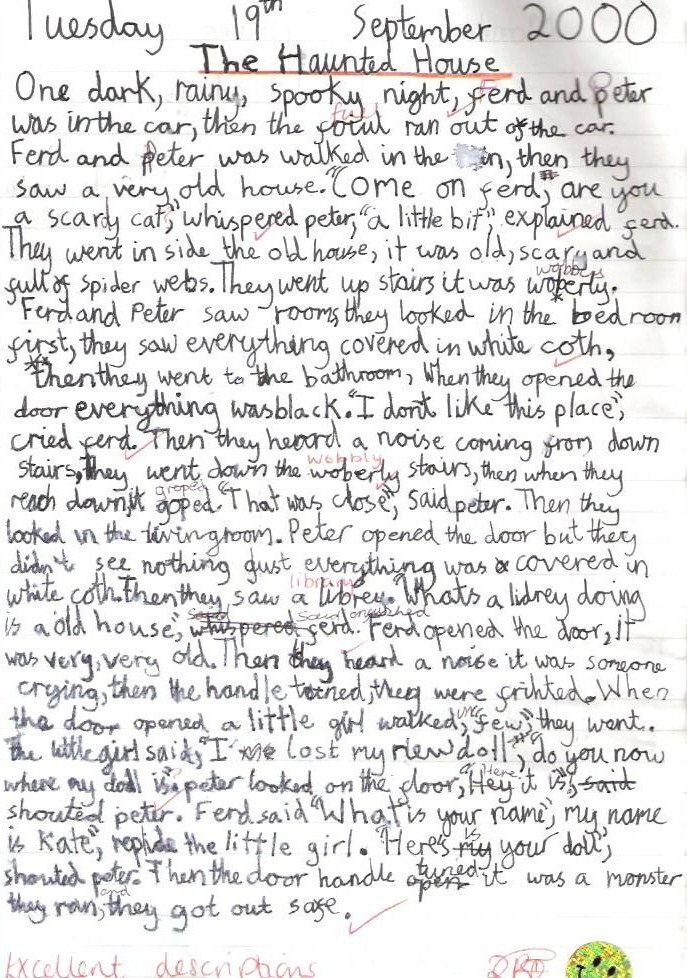 Tuesday 19th September 2000
The Haunted House
One dark, rainy, spooky night, ferd and peter
fuel
was in the car, then the foiul ran out of the car.
Ferd and Peter was walked in the in, then they
saw a very old house. "Come on ferd," are you
a scardy cat," whispered peter, "a little bit", explained ferd.
They went in side the old house, it was old, scary and
wobbers
full of spider webs. They went up stairs it was woperly.
Ferd and Peter saw rooms they looked in the bedroom
first, they saw everything covered in white coth,
Then they went to the bathroom, When they opened the
door everything was black. "I dont like this place",
cried ferd. Then they heard a noise coming from down
wobbly
stairs, they went down the woberly stairs, then when they
groped
reach down it goped. "That was close", said peter. Then they
looked in the living room. Peter opened the door but they
didn't see nothing gust everything was a covered in
library
white coth. Then they saw a librey. "Whats a lidrey doing
said said onguished
is a old house", whispered ferd. Ferd opened the door, it
was very, very old. Then they heard a noise it was someone
crying, then the handle terned, they were frihted. When
the door opened a little girl walked, "few" they went.
the little girl said, "I lost my new doll", "do you now
Here
where my doll is", peter looked on the floor, "Hey it is", said
shouted peter. Ferd said "What is your name", my name
is
is Kate", replide the little girl. "Here's my your doll",
tuned
shouted peter. Then the door handle open it was a monster
and
they ran, they got out safe.
Excellent descriptions